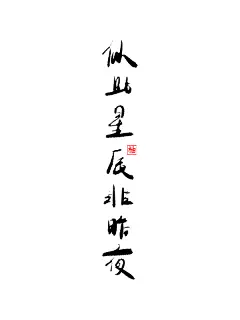 似此星辰非昨夜